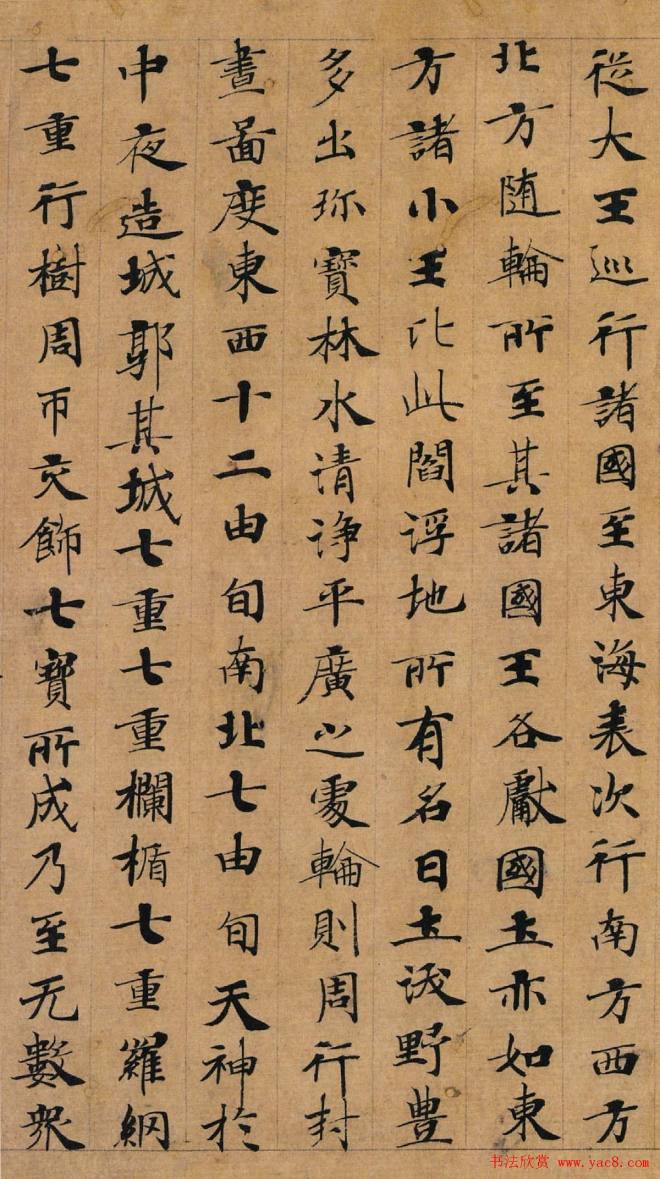 從大王巡行諸國至東海表次行南方西方
北方随輪所至其諸國王各獻國土亦如東
方諸小王比此閻浮地所有名曰土沃野豊
多出珎寶林水清浄平廣之處輪則周行封
畫啚度東西十二由旬南北七由旬天神於
中夜造城郭其城七重七重欄楯七重羅網
七重行樹周帀交飾七寶所成乃至无數衆
书法欣赏 www.yac8.com